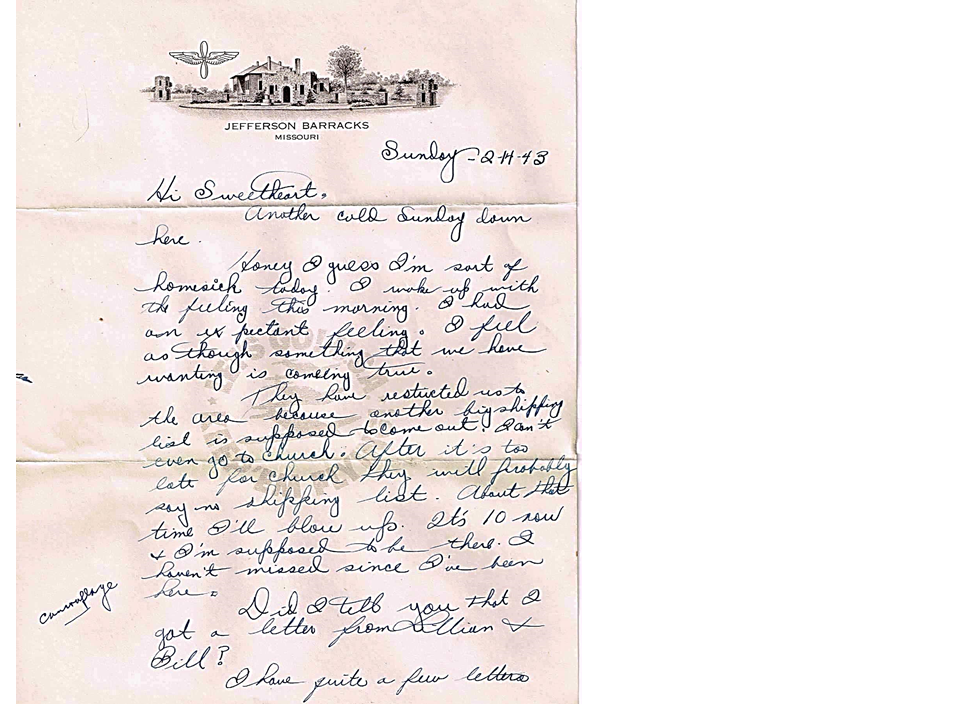 JEFFERSON BARRACKS
MISSOURI
Sunday - 2-14-43
Hi Sweetheart,
Another cold Sunday down
here.
Honey I guess I'm sort of
homesick today. I woke up with
the feeling this morning. I had
an expectant feeling. I feel
as though something that we have
wanting is comeing true.
They have restricted us to
the area because another big shipping
list is supposed to come out. I can't
even go to church. After it's too
late for church they will probably
say no shipping list. About that
time I'll blow up. It's 10 now
& I'm supposed to be there. I
haven't missed since I've been
here.
camouflage
Did I tell you that I
got a letter from Lillian &
Bill?
I have quite a few letters